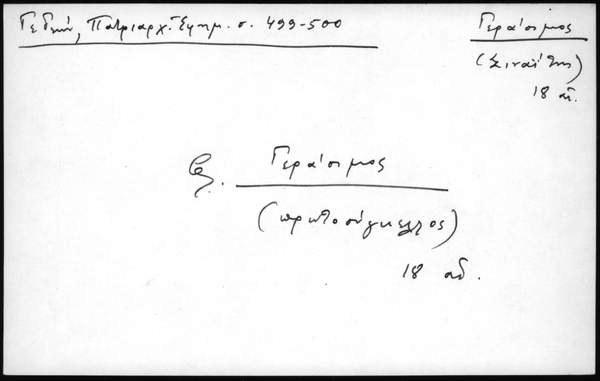 Γεδεών, Πατριαρχ. Εφημ. σ. 499-500
Γεράσιμος
(Σιναΐτης)
18 αι.
βλ. Γεράσιμος
(πρωτοσύγκελλος)
18 αι.